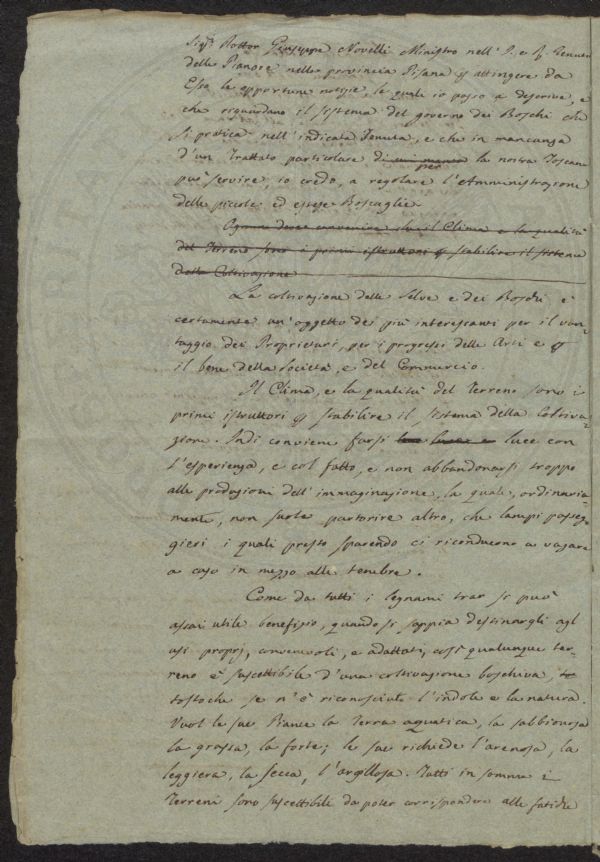 Sig.r Dottor Giuseppe Novelli Ministro nell' I. e R. Tenuta
delle Pianore nella provincia Pisana p attingere da
Esso le opportune notizie, le quali io posso a descrive, e
che riguardano il sistema del governo dei Boschi che
si pratica nell' indicata Tenuta, e che in mancanza
d'un Trattato particolare di per la nostra Toscana
può servire, io credo, a regolare l'Amministrazione
delle piccole ed estese Boscaglie.
convenire che il Clima e la qualità
del Terreno sono i primi istruttori p stabilire il sistema
della Coltivazione
La coltivazione delle Selve e dei Boschi è
certamente un' oggetto dei più interessanti per il van-
taggio dei Proprietari, per i progressi delle Arti e p
il bene della Società, e del Commercio.
Il Clima, e la qualità del Terreno sono i
primi istruttori p stabilire il sistema della Coltiva-
zione. Indi conviene farsi luce con
l'esperienza, e col fatto, e non abbandonarsi troppo
alle produzioni dell' immaginazione, la quale, ordinaria-
mente, non suole partorire altro, che lampi passeg-
gieri i quali presto sparendo ci riconducono a vagare
a caso in mezzo alle tenebre.
Come da tutti i legnami trar si può
assai utile benefizio, quando si sappia destinargli agl
usi proprj, convenevoli, e adattati, così qualunque ter-
reno è suscettibile d'una coltivazione boschiva, to
tostochè se n'è riconosciuto l'indole e la natura.
Vuol le sue Piante la Terra aquatica, la sabbionosa
la grassa, la forte; le sue richiede l'arenosa, la
leggiera, la secca, l'argillosa. Tutti in somma i
Terreni sono suscettibile da poter corrispondere alle fatiche